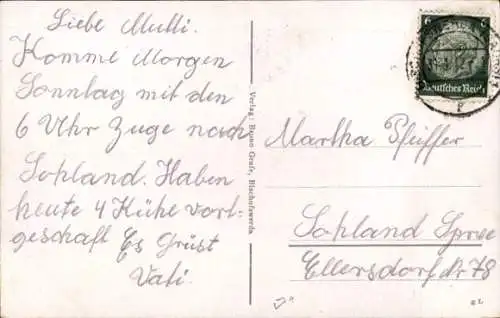 Liebe Mutti.
Komme Morgen
Sonntag mit den
6 Uhr Zuge nach
Sohland. Haben
heute 4 Kühe vort-
geschaft Es Grüst
Vati.
Verlag: Bruno Grafe, Bischofswerda
6 6
Deutsches Reich
Martha Pfeiffer
Sohland Spree
Ellersdorf Nr 78